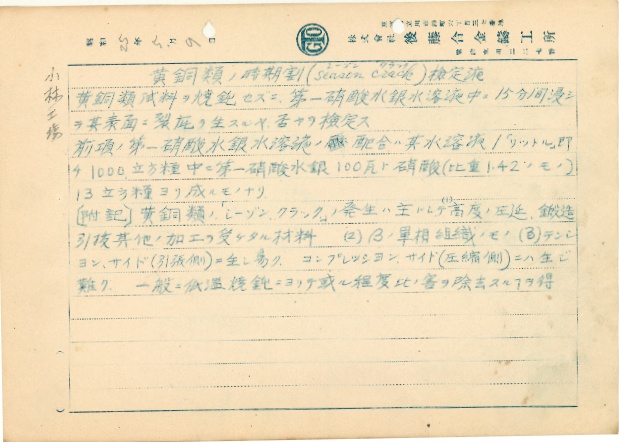 昭和25年5月9日
株式會社 後藤合金鑄工所
小林工場
黄銅類ノ時期割(シーズン クラック season crack)検定液
黄銅類試料ヲ焼鈍セズニ、第一硝酸水銀水溶液中ニ15分間浸シ
ヲ其表面ニ裂疵ヲ生スルヤ否ヤヲ検定ス
前項ノ第一硝酸水銀水溶液ノ配合ハ其水溶液1「リットル」即
チ1000立方糎中ニ第一硝酸水銀100瓦ト硝酸(比重1.42ノモノ)
13立方糎ヨリ成ルモノナリ
[附記] 黄銅類ノ「シーズン、クラック」ノ発生ハ主トシテ(1)高度ノ圧延、鍛造
引抜其他ノ加工ヲ受ケタル材料 (2) βノ單相組織ノモノ (3) テンシ
ヨン、サイド(引張側)ニ生シ易ク コンプレッシヨン、サイド(圧縮側)ニハ生シ
難ク 一般ニ低温焼鈍ニヨリテ或ル程度此ノ害ヲ除去スルヲ得